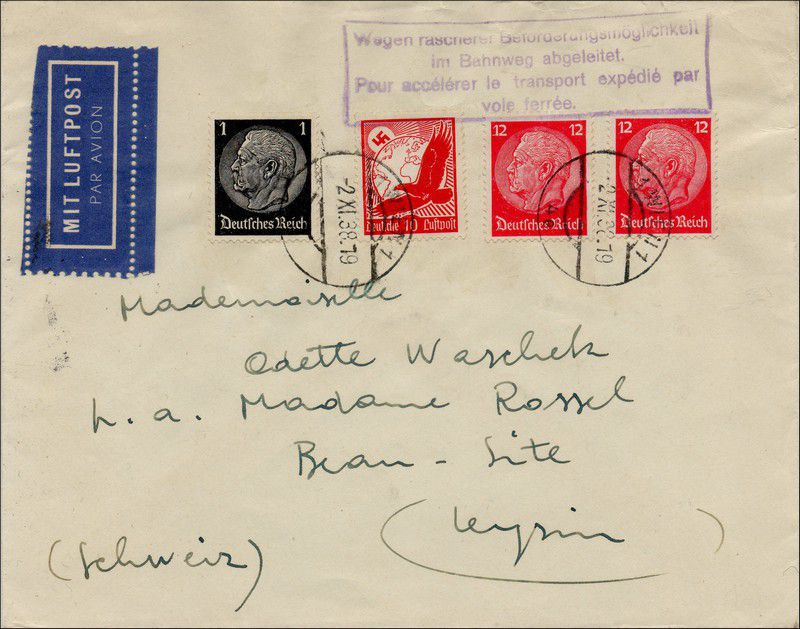 Wegen rascherer Beförderungsmöglichkeit
im Bahnweg abgeleitet.
Pour accélérer le transport expédié par
voie ferrée.
MIT LUFTPOST
PAR AVION
1 1
Deutsches Reich
Deutsche 10 Luftpost
12 12
Deutsches Reich
12 12
Deutsches Reich
-2.XI.38.19
1
-2.XI.38.19
1
Mademoiselle
Odette Waschek
h. a. Madame Rossel
Beau-Site
(Leysin)
(Schweiz)